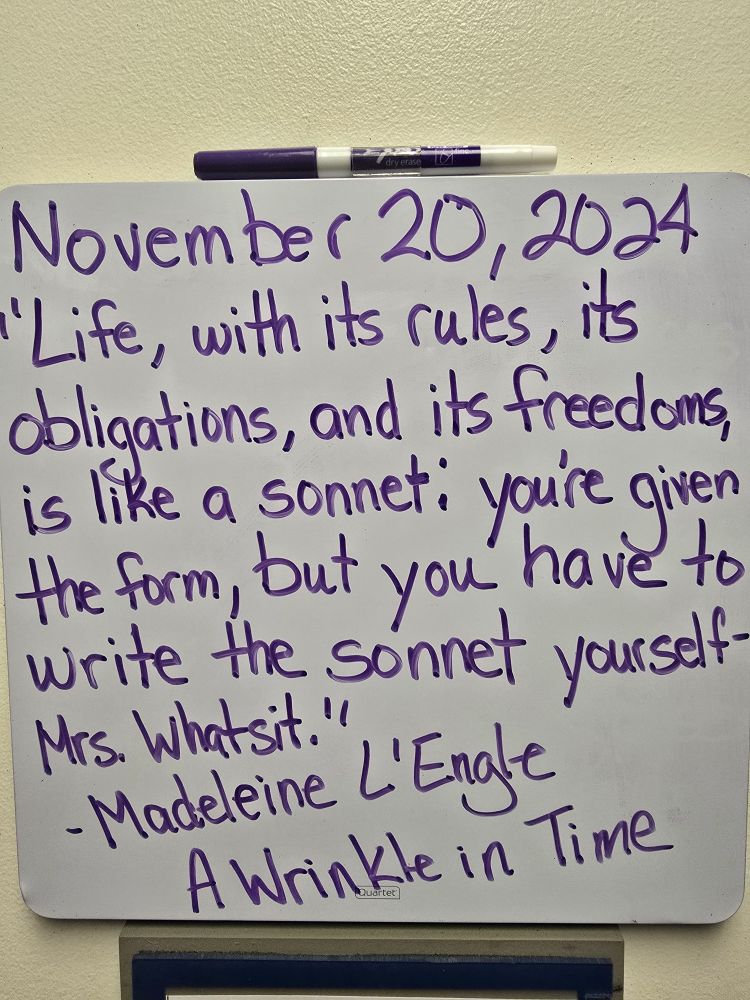 Expo
dry erase
fine
November 20, 2024
"Life, with its rules, its
obligations, and its freedoms,
is like a sonnet: you're given
the form, but you have to
write the sonnet yourself-
Mrs. Whatsit."
-Madeleine L'Engle
A Wrinkle in Time
Quartet